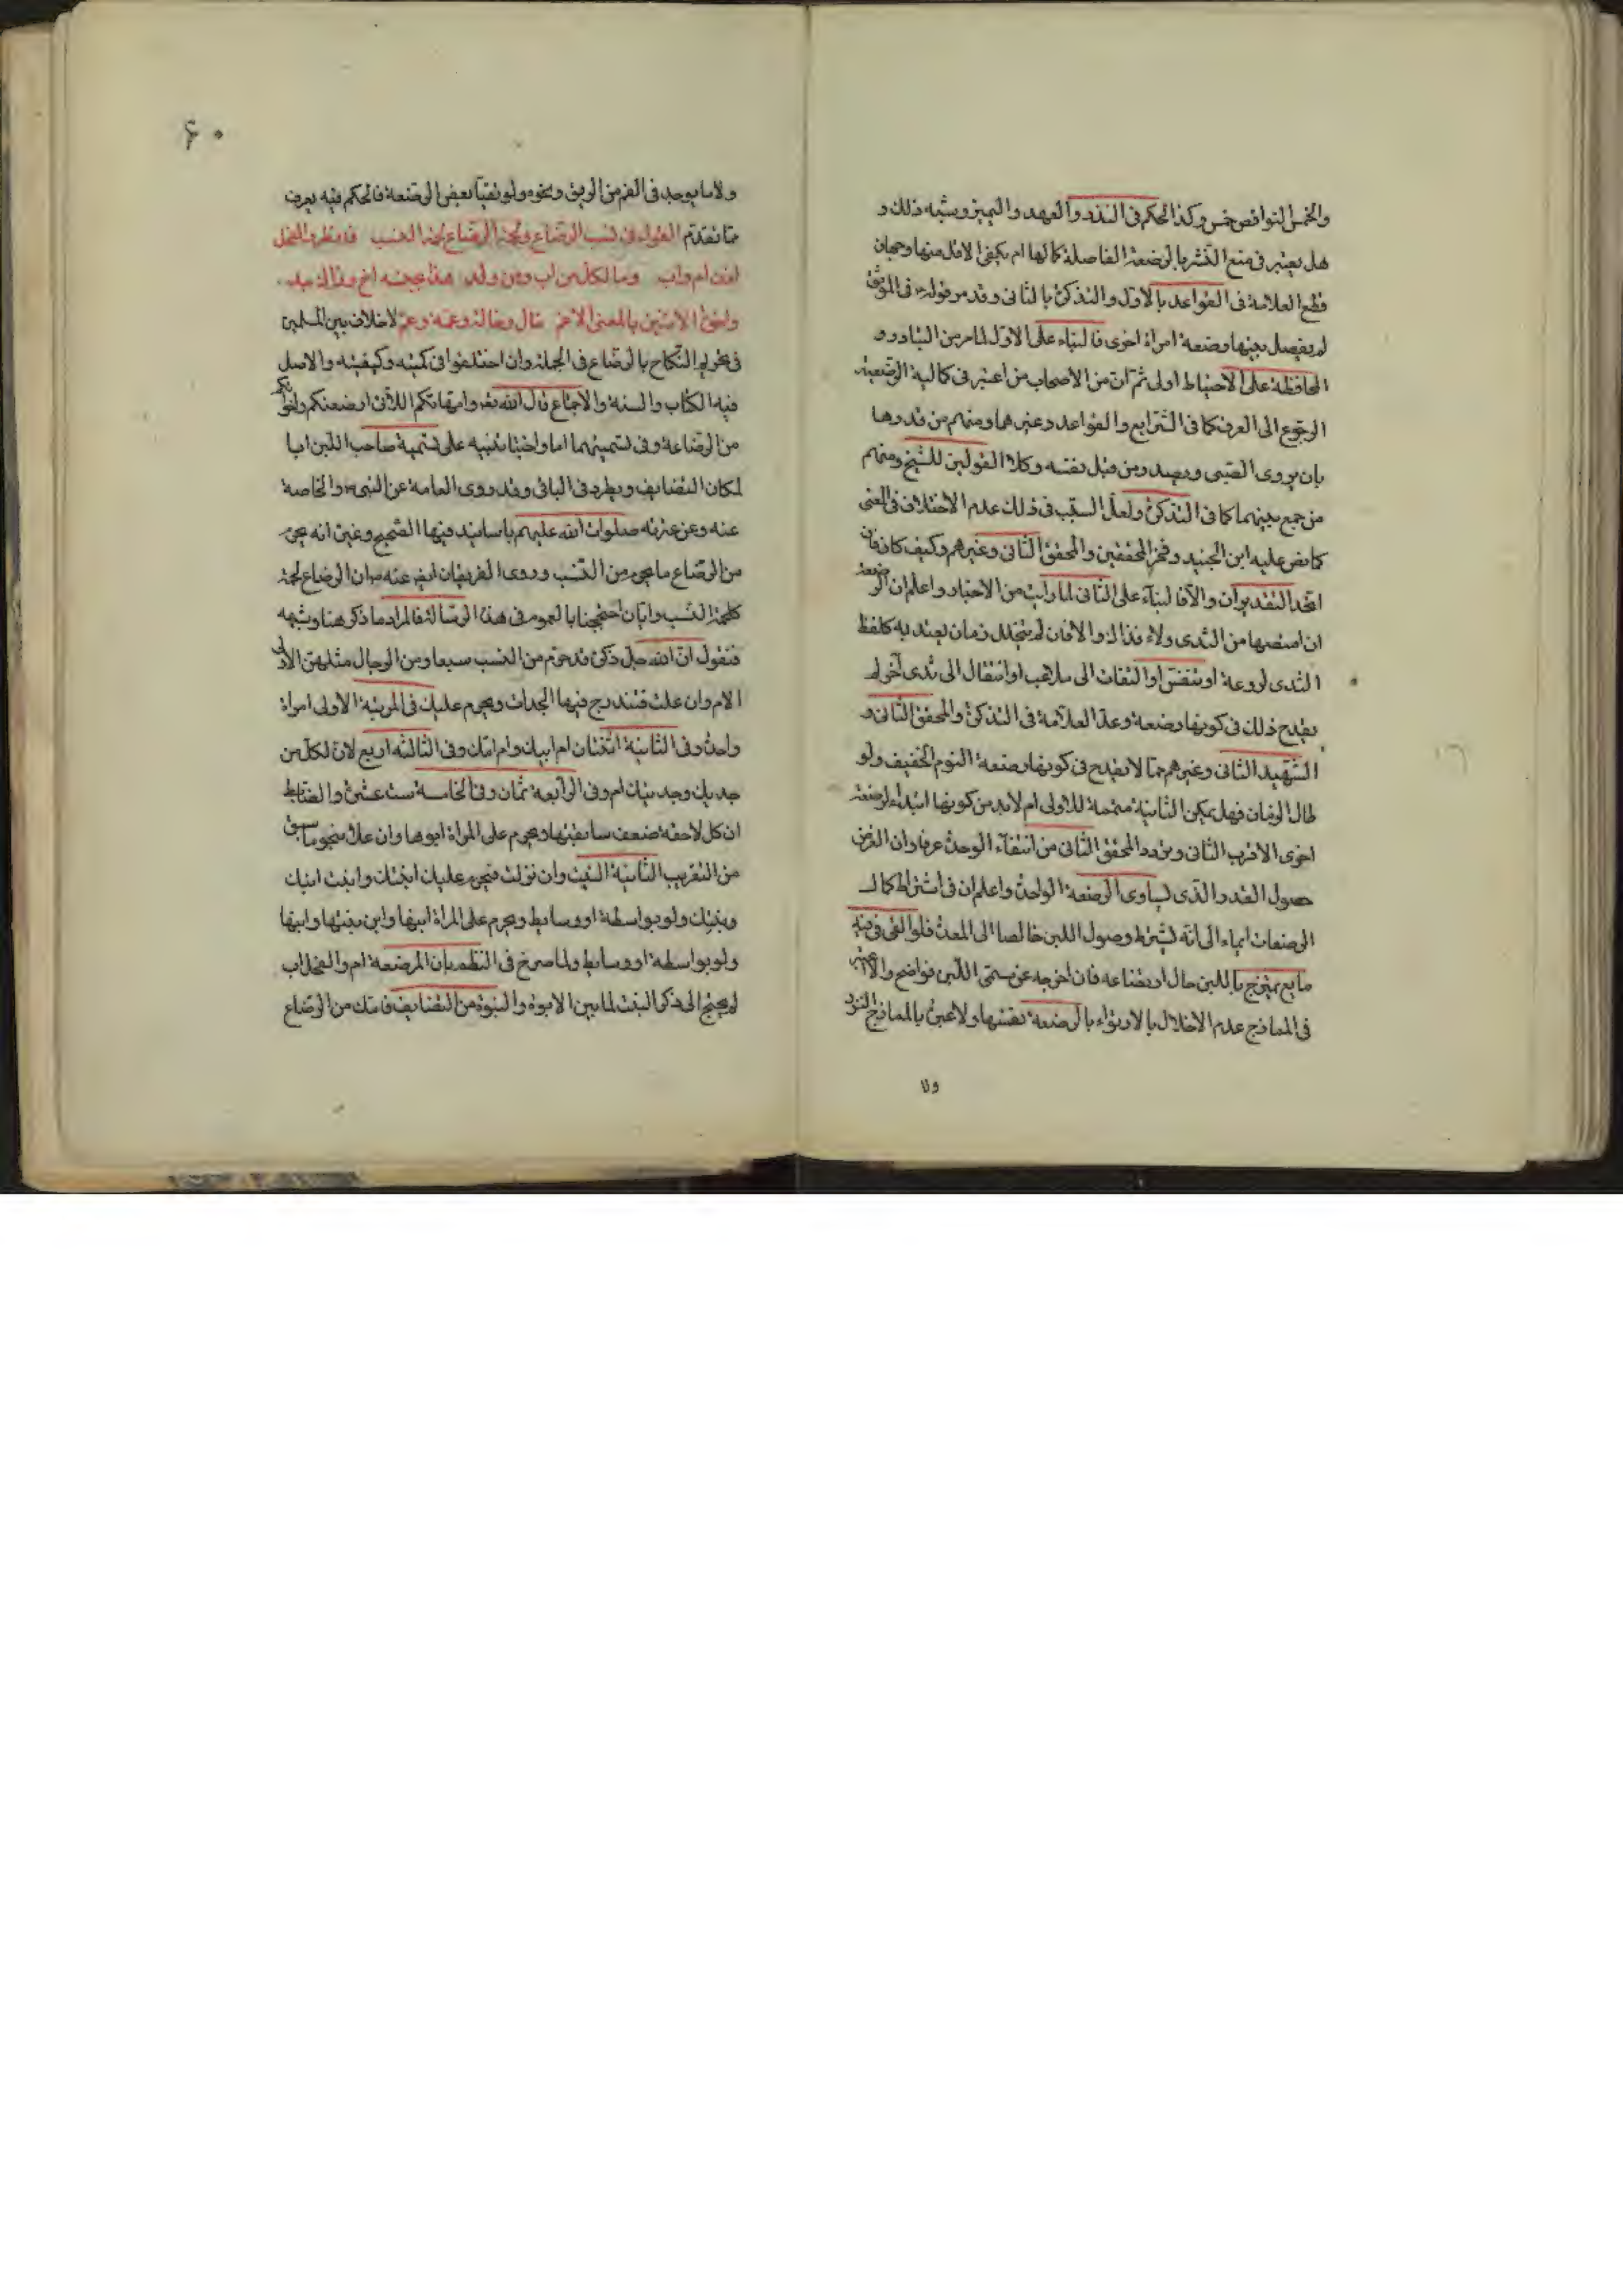 والخمس النواقص خمس وكذا الحكم في النذر والعهد واليمين وشبه ذلك و
هل يعتبر في منع النشر بالرضعة الفاصلة كمالها ام يكفي الاقل منها وجهان
قطع العلامة في القواعد بالاول والتذكرة بالثاني وقد مر قوله في الموثق
لم يفصل بينها رضعة امراة اخرى فالبناء على الاول لما مر من التبادر و
المحافظة على الاحتياط اولى ثم ان من الاصحاب من اعتبر في كمالية الرضعة
الرجوع الى العرف كما في الشرايع والقواعد وغيرهما ومنهم من قدرها
بان يروى الصبي ويصدر من قبل نفسه وكلا القولين للشيخ ومنهم
من جمع بينهما كما في التذكرة ولعل السبب في ذلك عدم الاختلاف في المعنى
كما نص عليه ابن الجنيد وفخر المحققين والمحقق الثاني وغيرهم وكيف كان فان
اتحد التقديران والا فالبناء على الثاني لما رايت من الاخبار واعلم ان الرضعة
ان امتصها من الثدى ولاء فذاك والا فان لم يتخلل زمان يعتد به كلفظ
الثدى لروعة او تنفس او التفات الى ملاعب او انتقال الى ثدى آخر لم
يقدح ذلك في كونها رضعة وعد العلامة في التذكرة والمحقق الثاني و
الشهيد الثاني وغيرهم مما لا يقدح في كونها رضعة النوم الخفيف ولو
طال الزمان فهل يمكن الثانية متممة للاولى ام لا بد من كونها ابتداء لرضعة
اخرى الاقرب الثاني وتردد المحقق الثاني من انتفاء الوحدة عرفا وان الغرض
حصول القدر الذي يساوى الرضعة الواحدة واعلم ان في اشتراط كمال
الرضعات ايماء الى انه يشترط وصول اللبن خالصا الى المعدة فلو القى في فيه
مايع يمتزج باللبن حال ارتضاعه فان اخرجه عن مسمى اللبن فواضح والا
في الممازج عدم الاخلال بالارتواء بالرضعة نفسها ولا عبرة بالممازج النزر
ولا
۶۰
ولا ما يوجد في الفم من الريق ونحوه ولو تقيأ بعض الرضعة فالحكم فيه يعرف
مما تقدم القول في نسب الرضاع ولحمة الرضاع لحمة النسب فذ وظر والفحل
اذن ام واب وما لكل من اب ومن ولد هذا عجنه اخ وذاك جد
واخوة الاثنين بالمعنى الاعم خال وخالة وعمة وعم لا خلاف بين المسلمين
في تحريم النكاح بالرضاع في الجملة وان اختلفوا في كميته وكيفيته والاصل
فيه الكتاب والسنة والاجماع قال الله تعر وامهاتكم اللاتى ارضعنكم واخواتكم
من الرضاعة وفي تسميتهما اما واختا تنبيه على تسمية صاحب اللبن ابا
لمكان التضايف ويطرد في الباقي وقد روى العامة عن النبى والخاصة
عنه وعن عترته صلوات الله عليهم باسانيد فيها الصحيح وغيره انه يحرم
من الرضاع ما يحرم من النسب وروى الفريقان ايض عنه ان الرضاع لحمة
كلحمة النسب وايان احتججنا بالعموم في هذه الرسالة فالمراد ما ذكر هنا وشبهه
فنقول ان الله جل ذكره قد حرم من النسب سبعا ومن الرجال مثلهن الاولى
الام وان علت فتندرج فيها الجدات ويحرم عليك في المرتبة الاولى امراة
واحدة وفي الثانية اثنتان ام ابيك وام امك وفي الثالثة اربع لان لكل من
جديك وجدتيك ام وفي الرابعة ثمان وفي الخامسة ست عشرة والضابط
ان كل لاحقة ضعف سابقتها ويحرم على المراة ابوها وان علا بنحو ما سبق
من التقريب الثانية البنت وان نزلت فتحرم عليك ابنتك وابنت ابنك
وبنتك ولو بواسطة او وسايط ويحرم على المراة ابنها وابن بنتها وابنها
ولو بواسطة او وسايط ولما صرح في النظم بان المرضعة ام والفحل اب
لم يحتج الى ذكر البنت لما بين الابوة والبنوة من التضايف فامك من الرضاع